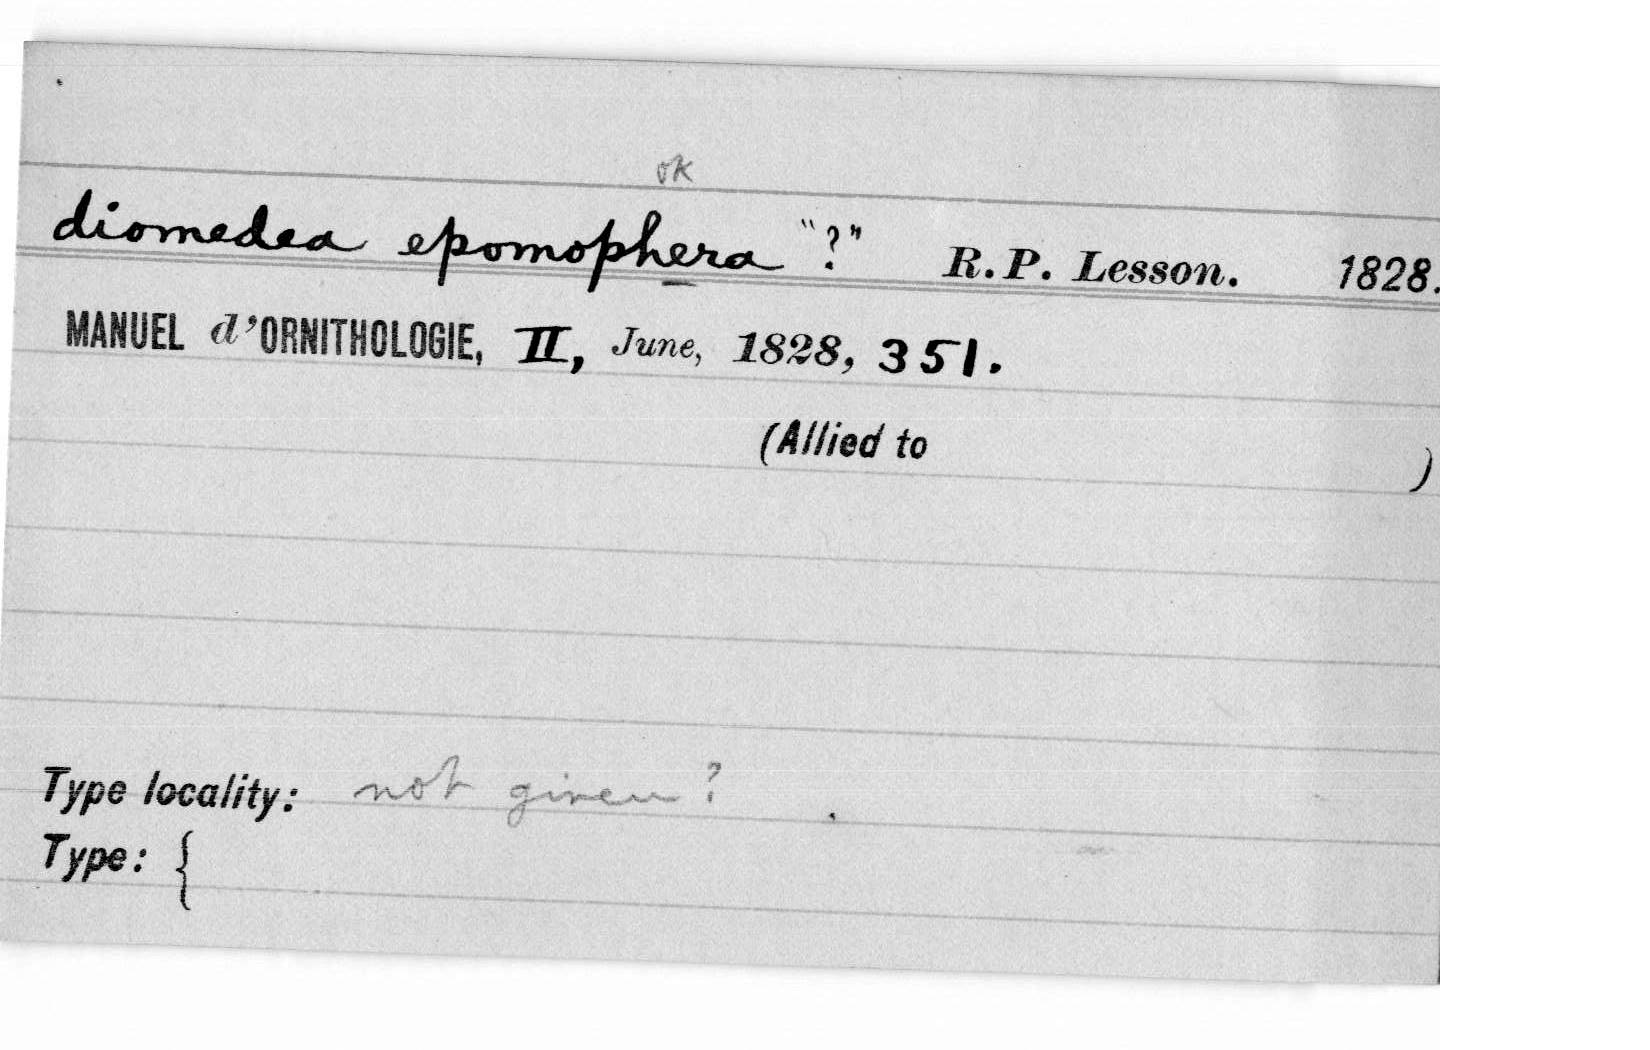 ok
diomedea epomophera "?" R. P. Lesson. 1828.
MANUEL d'ORNITHOLOGIE, II, June, 1828, 351.
(Allied to )
Type locality: not given?
Type: {